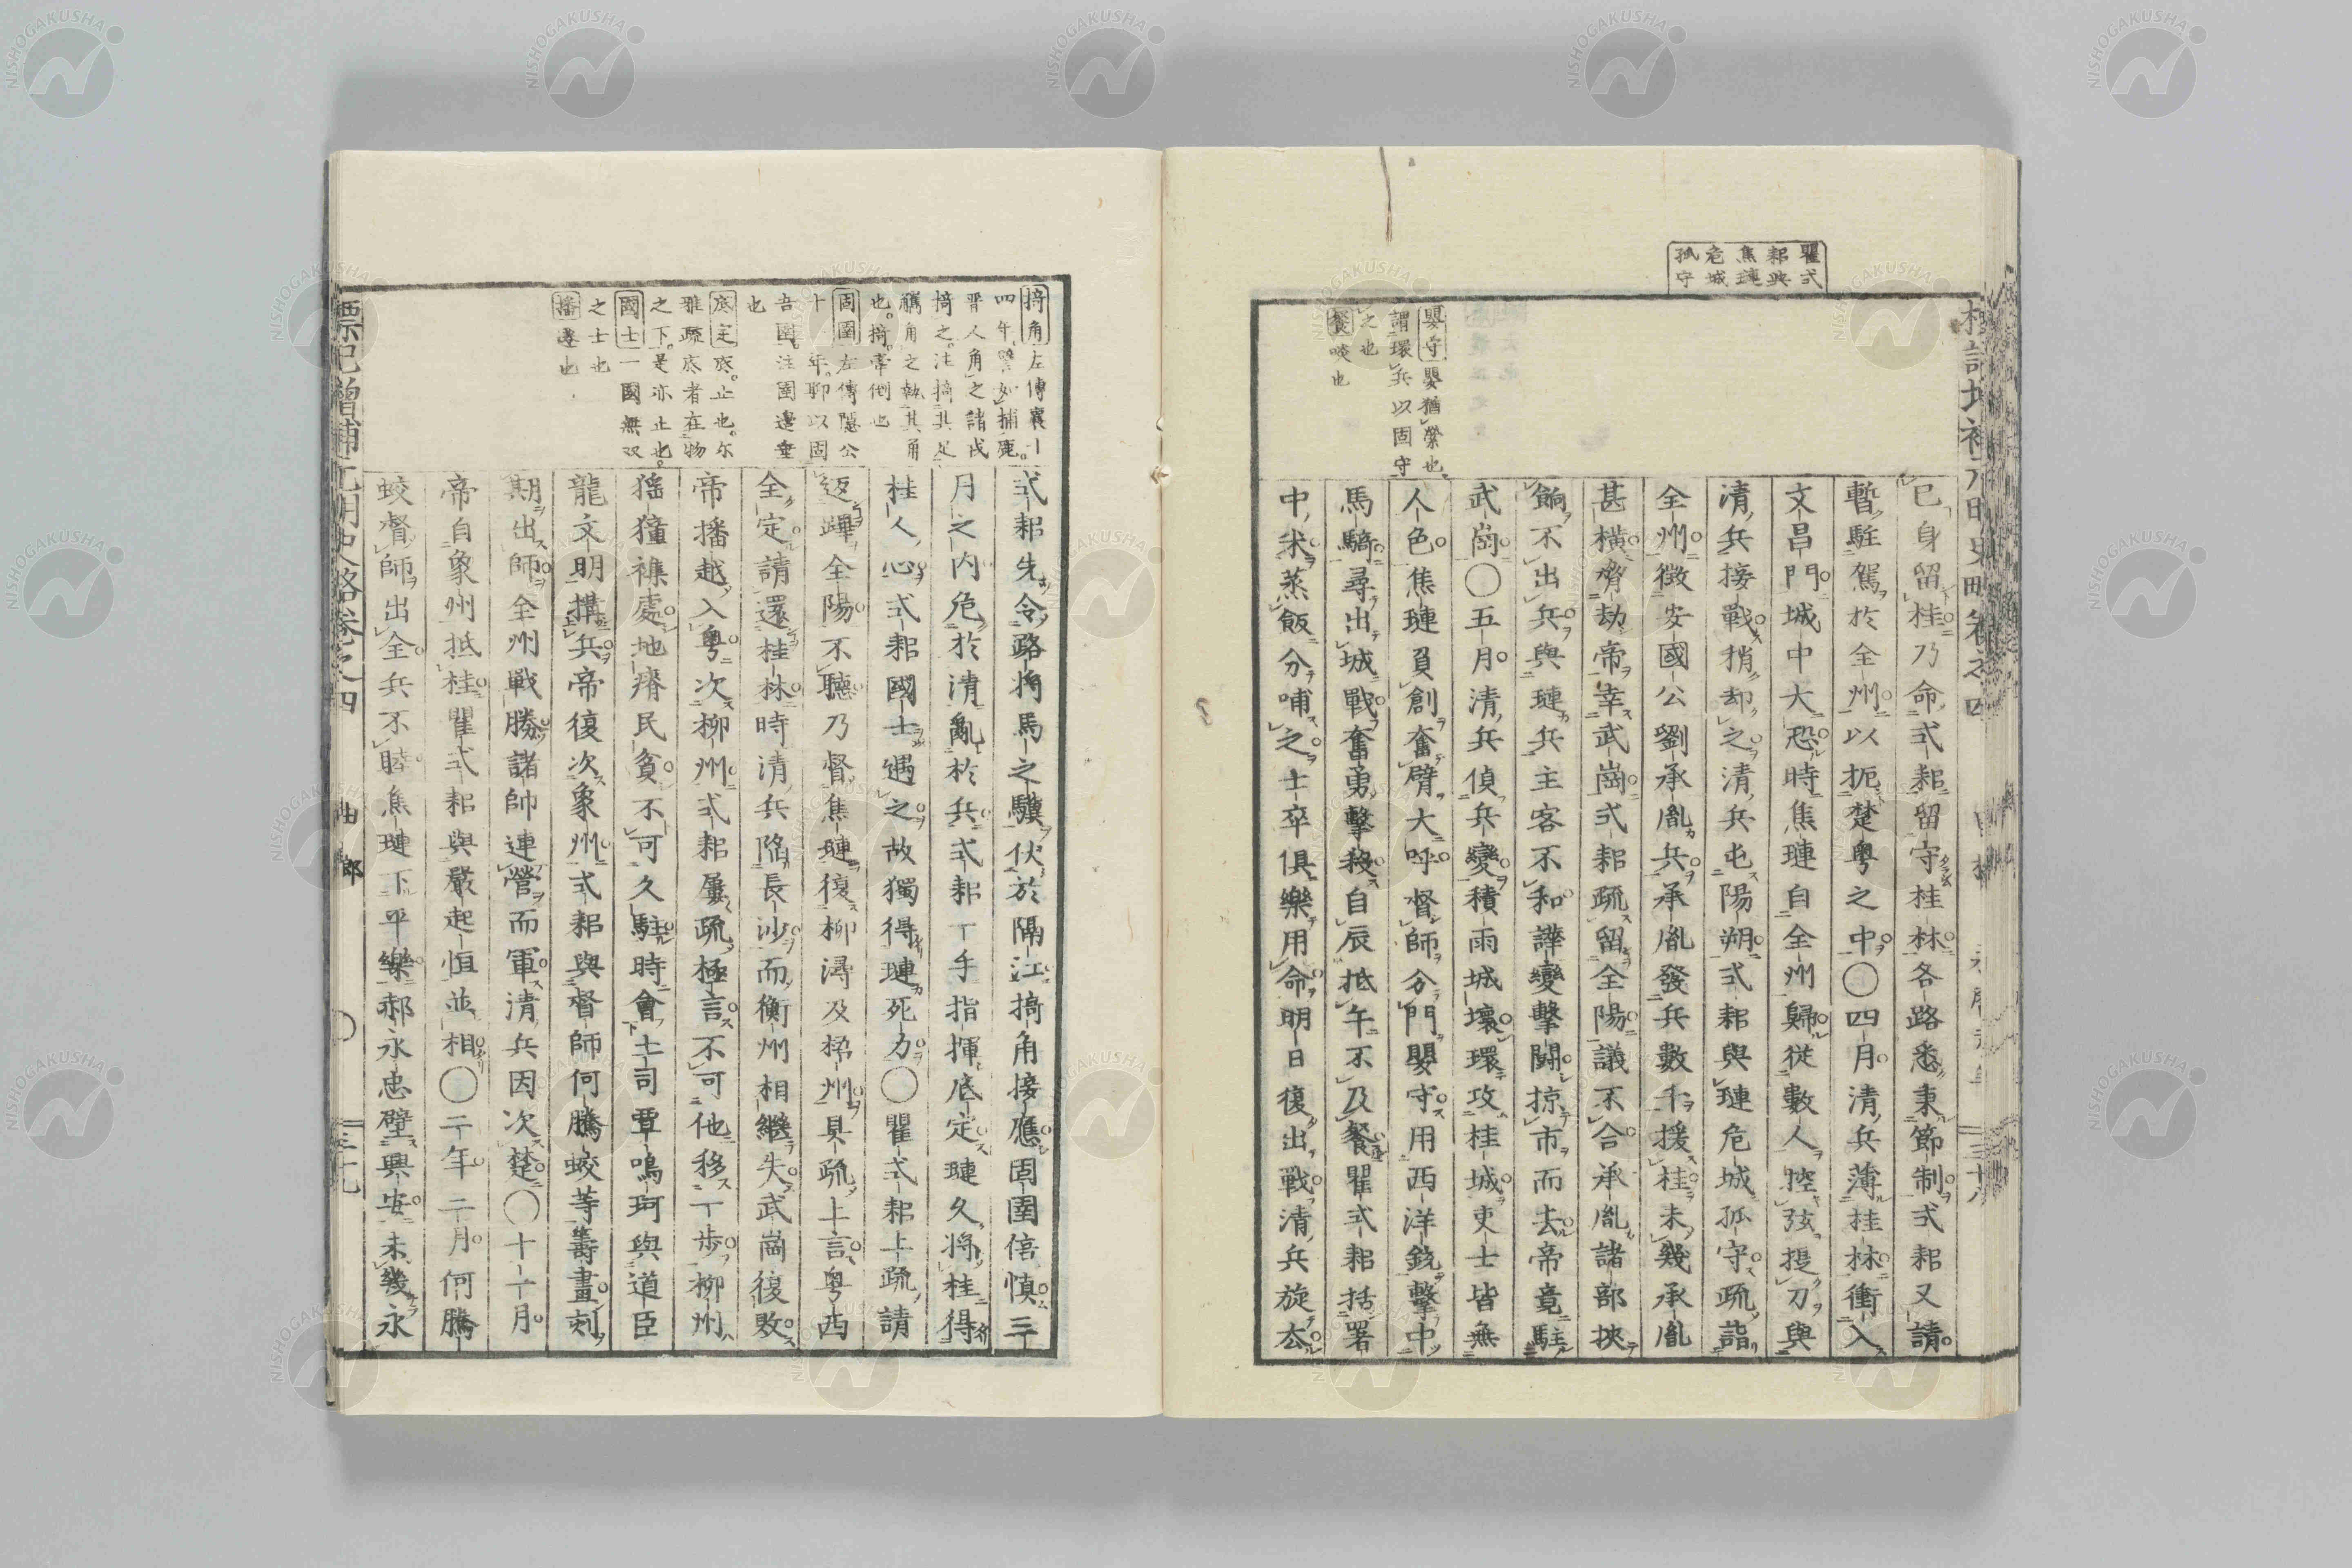 瞿式
耜與
焦璉
危城
孤守
嬰守嬰猶縈也
謂環兵以固守
之也
餐啖也
已身留桂乃命式耜留守桂林各路悉秉節制式耜又請
暫駐駕於全州以扼楚粤之中〇四月清兵薄桂林衝入
文昌門城中大恐時焦璉自全州歸從數人控弦提刀與
清兵接戰稍却之清兵屯陽朔式耜與璉危城孤守疏詣
全州徴安國公劉承胤兵承胤發兵數千援桂未幾承胤
甚橫脅劫帝幸武崗式耜疏留全陽議不合承胤諸部挾
餉不出兵與璉兵主客不和譁變擊鬪掠市而去帝竟駐
武崗〇五月清兵偵兵變積雨城壞環攻桂城吏士皆無
人色焦璉負創奮臂大呼督師分門嬰守用西洋銃擊中
馬騎尋出城戰奮勇擊殺自辰抵午不及餐瞿式耜括署
中米蒸飯分哺之士卒俱樂用命明日復出戰清兵旋厺
掎角左傳襄十
四年譬如捕鹿
晋人角之諸戎
掎之注掎其足
觿角之執其角
也掎常倒也
固圉左傳隠公
十一年聊以固
吾圉注圉邊埀
也
底定底止也尓
雅疏底者在物
之下是亦止也
國士一國無双
之士也
播遷也
式耜先令路將馬之驥伏於隔江掎角接應固圉倍慎三
月之内危於清亂於兵式耜一手指揮底定璉久將桂得
桂人心式耜國士遇之故獨得璉死力〇瞿式耜上疏請
返蹕全陽不聽乃督焦璉復柳潯及梧州具疏上言粤西
全定請還桂林時清兵陷長沙而衡州相繼失武崗復敗
帝播越入粤次柳州式耜屢疏極言不可他移一歩柳州
猺獞襍處地瘠民貧不可久駐時會土司覃鳴珂與道臣
龍文明搆兵帝復次象州式耜與督師何騰蛟等籌畫刻
期出師全州戰勝諸帥連營而軍清兵因次楚〇十一月
帝自象州抵桂瞿式耜與嚴起恒並相〇二年二月何騰
蛟督師出全兵不睦焦璉下平樂郝永忠壁興安未幾永
標記增補元明史略卷之四